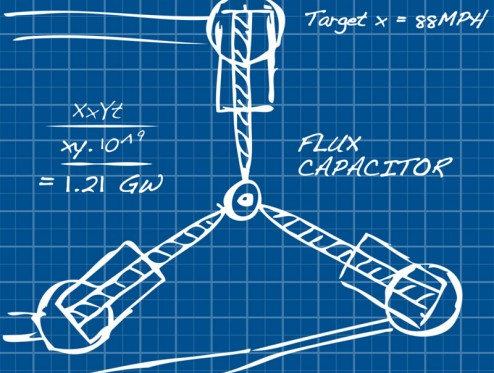 Target x = 88MPH
XxYt
xy.10^9
= 1.21 GW
FLUX
CAPACITOR